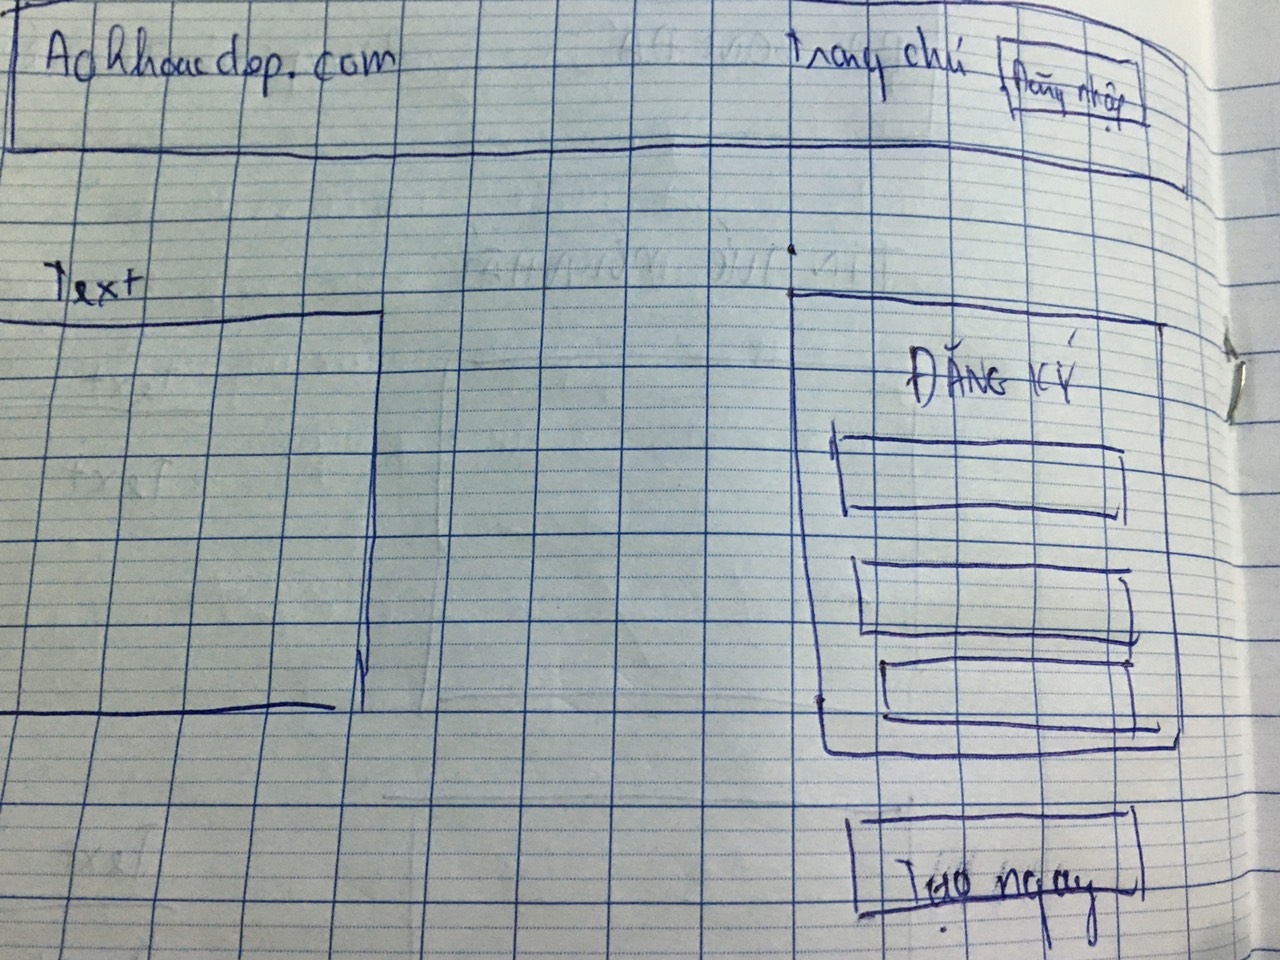 Aokhoacdep.com Trang chủ Đăng nhập
Text
ĐĂNG KÝ
Tạo ngay